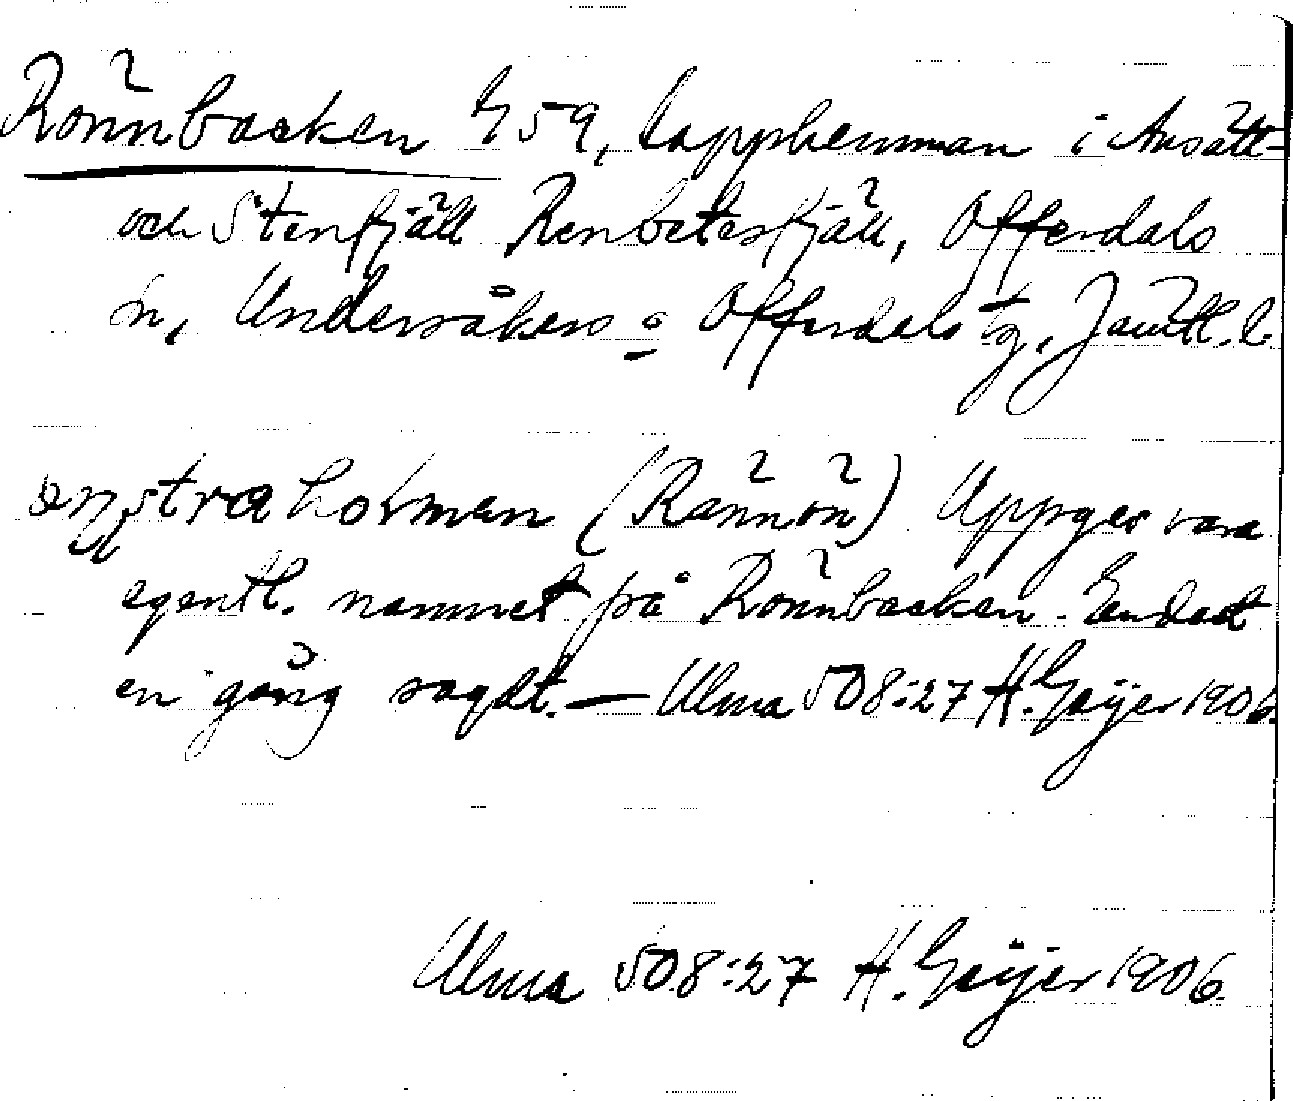 Rönnbacken G 59, lapphemman i Ansätt-
och Stenfjäll Renbetesfjäll, Offerdals
sn, Undersåkers o Offerdals tg, Jämtl. l.
(Rännön) Uppges vara
egentl. namnet på Rönnbacken. Endast
en gång sagdt. — Ulma 508:27 H. Geijer 1906.
Ulma 508:27 H. Geijer 1906